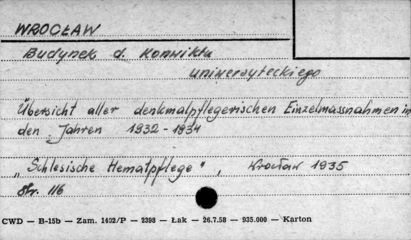 WROCŁAW
Budynek d. Konwiktu
uniwersyteckiego
Übersicht aller denkmalpflegerischen Einzelmassnahmen in
den Jahren 1932-1934
„Schlesische Hematpflege", Wrocław 1935
Str. 116
CWD — B-15b — Zam. 1402/P — 2398 — Łak — 26.7.58 — 935.000 — Karton